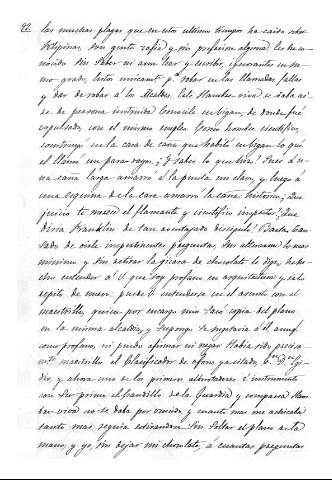 22
las muchas plagas que en estos ultimos tiempos ha caido sobre
Filipinas, son quinta zafia y sin profesion alguna, les ha co-
nocido sin saber ni aun leer y escribir, ignorantes en su-
mo grado, listos unicamte. pa. robar en las llamadas fallas
y dar de robar á los Alcaldes. Cele Hambre-viva se daba ai-
re de persona instruida. Conocile en Vigan, de donde fué
expulsado, con el mismo empleo. Como hombre cientifico,
construyó en la cara de casa que habitó en Vigan lo que
él llama un para-rayos. ¿Y saber lo que hizo? Pues á u-
na caña larga amarró á la punta un clavo, y luego á
una esquina de la casa amarró la caña historia; ¿Que
juicio te merece el flamante y cientifico inspector? ¿Que
diria Franklin de tan aventajado discipulo? Basta. Can-
sado de oirle impertinentes preguntas, sin alterarme lo mas
minimo y sin retirar la gicara de chocolate le dige, hube-
cho entender á V. que soy profano en arquitectura y en lo
espito de nuevo puede V. entenderse en el asunto con el
maestrillo, quien por encargo mio sacó copia del plano
en la misma alcaldia, y supongo se sujetaria á él, aunqe.
como profano, ni puedo afirmar ni negar. Habia sido preciса-
mte. maestrillo el planificador de aforo ya citado, Dn. Egi-
dio, y ahora uno de los primeros alentadores é instrumento
con su primo el caudillo de la Guardia y comparsa. Ham-
bre-viva no se daba por vencido y cuanto mas me achicaba
tanto mas seguia estirandose. Sin soltar el plano de la
mano, y yo, sin dejar mi chocolate, á cuantas preguntas